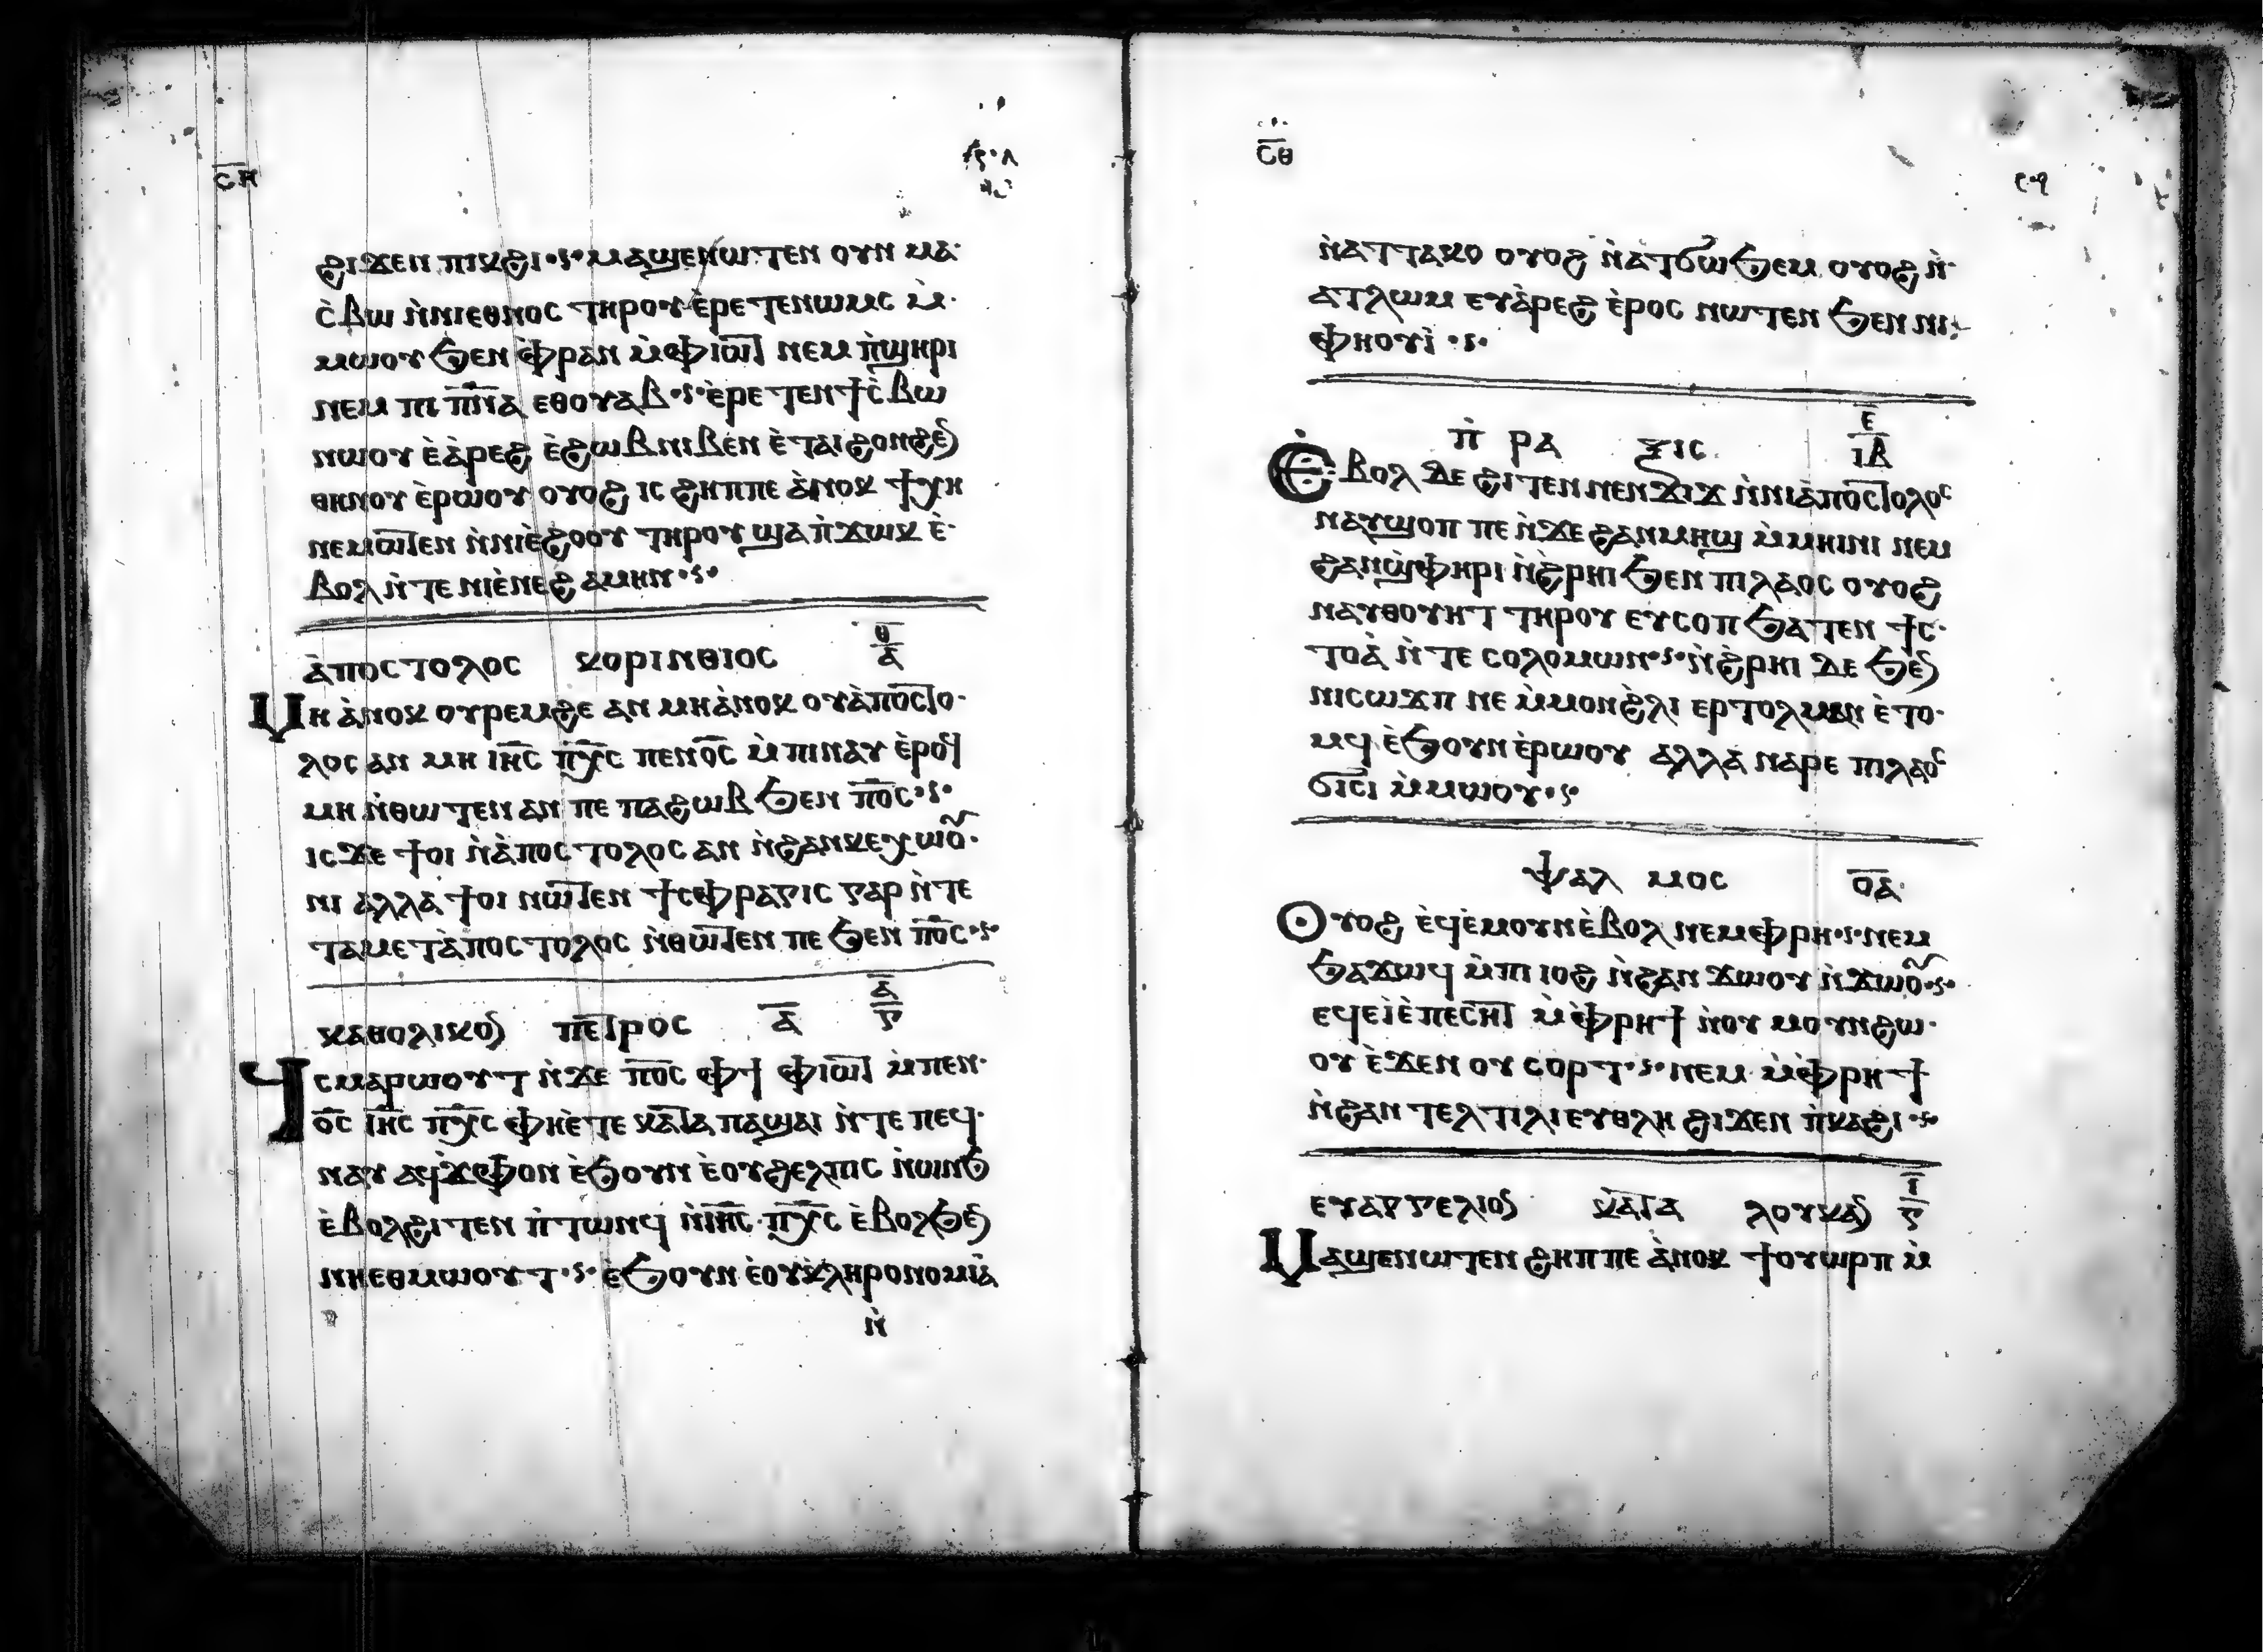 ⲥⲏ
ϩⲓϫⲉⲛ ⲡⲓⲕϩⲓ·ⲋ· ⲙⲁϣⲉⲛⲱⲧⲉⲛ ⲟⲩⲛ ⲙⲁ·
ⲥ̀ⲃⲱ ⲛ̀ⲛⲓⲉⲑⲛⲟⲥ ⲧⲏⲣⲟⲩ ⲉ̀ⲣⲉⲧⲉⲛⲱⲙⲥ ⲙ̀·
ⲙⲱⲟⲩ ϧⲉⲛ ⲫ̀ⲣⲁⲛ ⲙ̀ⲫ̀ⲓⲱ̅ⲧ̅ ⲛⲉⲙ ⲡ̀ϣⲏⲣⲓ
ⲛⲉⲙ ⲡⲓ ⲡ̅ⲛ̅ⲁ̅ ⲉⲑⲟⲩⲁⲃ·ⲋ· ⲉ̀ⲣⲉⲧⲉⲛϯⲥ̀ⲃⲱ
ⲛⲱⲟⲩ ⲉ̀ⲁ̀ⲣⲉϩ ⲉ̀ϩⲱⲃ ⲛⲓⲃⲉⲛ ⲉ̀ⲧⲁⲓϩⲟⲛϩⲉⲛ
ⲑⲏⲛⲟⲩ ⲉ̀ⲣⲱⲟⲩ ⲟⲩⲟϩ ⲓⲥ ϩⲏⲡⲡⲉ ⲁ̀ⲛⲟⲕ ϯⲭⲏ
ⲛⲉⲙⲱ̅ⲧ̅ⲉⲛ ⲛ̀ⲛⲓⲉ̀ϩⲟⲟⲩ ⲧⲏⲣⲟⲩ ϣⲁ ⲡ̀ϫⲱⲕ ⲉ̀·
ⲃⲟⲗ ⲛ̀ⲧⲉ ⲛⲓⲉ̀ⲛⲉϩ ⲁⲙⲏⲛ·ⲋ·
ⲁ̀ⲡⲟⲥⲧⲟⲗⲟⲥ ⲕⲟⲣⲓⲛⲑⲓⲟⲥ ⲑ̅ ⲁ̅
ⲙⲏ ⲁ̀ⲛⲟⲕ ⲟⲩⲣⲉⲙϩⲉ ⲁⲛ ⲙⲏ ⲁ̀ⲛⲟⲕ ⲟⲩⲁ̀ⲡⲟⲥ̅ⲧ̅ⲟ·
ⲗⲟⲥ ⲁⲛ ⲙⲏ ⲓⲏ̅ⲥ̅ ⲡⲭ̅ⲥ̅ ⲡⲉⲛⲟ̅ⲥ̅ ⲙ̀ⲡⲓⲛⲁⲩ ⲉ̀ⲣⲟϥ
ⲙⲏ ⲛ̀ⲑⲱⲧⲉⲛ ⲁⲛ ⲡⲉ ⲡⲁϩⲱⲃ ϧⲉⲛ ⲡⲟ̅ⲥ̅·ⲋ·
ⲓⲥϫⲉ ϯⲟⲓ ⲛ̀ⲁ̀ⲡⲟⲥⲧⲟⲗⲟⲥ ⲁⲛ ⲛ̀ϩⲁⲛⲕⲉⲭⲱⲟⲩ·
ⲛⲓ ⲁⲗⲗⲁ ϯⲟⲓ ⲛⲱ̅ⲧ̅ⲉⲛ ϯⲥⲫⲣⲁⲅⲓⲥ ⲅⲁⲣ ⲛ̀ⲧⲉ
ⲧⲁⲙⲉⲧⲁ̀ⲡⲟⲥⲧⲟⲗⲟⲥ ⲛ̀ⲑⲱ̅ⲧ̅ⲉⲛ ⲡⲉ ϧⲉⲛ ⲡⲟ̅ⲥ̅·ⲋ·
ⲕⲁⲑⲟⲗⲓⲕⲟⲛ ⲡⲉ̅ⲧ̅ⲣⲟⲥ ⲁ̅ ⲁ̅ ⲅ̅
ϥⲥⲙⲁⲣⲱⲟⲩⲧ ⲛ̀ϫⲉ ⲡⲟ̅ⲥ̅ ⲫϯ ⲫⲓⲱ̅ⲧ̅ ⲙ̀ⲡⲉⲛ·
ⲟ̅ⲥ̅ ⲓⲏ̅ⲥ̅ ⲡⲭ̅ⲥ̅ ⲫⲏⲉ̀ⲧⲉ ⲕⲁ̅ⲧ̅ⲁ ⲡⲁϣⲁⲓ ⲛ̀ⲧⲉ ⲡⲉϥ·
ⲛⲁⲓ ⲁϥϫ̀ⲫⲟⲛ ⲉ̀ϧⲟⲩⲛ ⲉ̀ⲟⲩϩⲉⲗⲡⲓⲥ ⲛ̀ⲱⲛϧ
ⲉ̀ⲃⲟⲗϩⲓⲧⲉⲛ ⲡ̀ⲧⲱⲛϥ ⲛ̀ⲓⲏ̅ⲥ̅ ⲡⲭ̅ⲥ̅ ⲉ̀ⲃⲟⲗϧⲉⲛ
ⲛⲏⲉⲑⲙⲱⲟⲩⲧ·ⲋ· ⲉ̀ϧⲟⲩⲛ ⲉ̀ⲟⲩⲕ̀ⲗⲏⲣⲟⲛⲟⲙⲓⲁ̀
ⲛ̀
ⲥⲑ
ⲛ̀ⲁⲧⲧⲁⲕⲟ ⲟⲩⲟϩ ⲛ̀ⲁⲧϭⲱϧⲉⲙ ⲟⲩⲟϩ ⲛ̀·
ⲁⲧⲗⲱⲙ ⲉⲩⲁ̀ⲣⲉϩ ⲉ̀ⲣⲟⲥ ⲛⲱⲧⲉⲛ ϧⲉⲛ ⲛⲓ·
ⲫⲏⲟⲩⲓ̀·ⲋ·
ⲡ̀ⲣⲁ ⲝⲓⲥ ⲉ̅ ⲓⲃ̅
ⲉ̀ⲃⲟⲗ ⲇⲉ ϩⲓⲧⲉⲛ ⲛⲉⲛϫⲓϫ ⲛ̀ⲛⲓⲁ̀ⲡⲟⲥ̅ⲧ̅ⲟⲗⲟⲥ
ⲛⲁⲩϣⲟⲡ ⲡⲉ ⲛ̀ϫⲉ ϩⲁⲛⲙⲏϣ ⲙ̀ⲙⲏⲓⲛⲓ ⲛⲉⲙ
ϩⲁⲛϣ̀ⲫⲏⲣⲓ ⲛ̀ϩ̀ⲣⲏⲓ ϧⲉⲛ ⲡⲓⲗⲁⲟⲥ ⲟⲩⲟϩ
ⲛⲁⲩⲑⲟⲩⲏⲧ ⲧⲏⲣⲟⲩ ⲉⲩⲥⲟⲡ ϧⲁⲧⲉⲛ ϯⲥ·
ⲧⲟⲁ̀ ⲛ̀ⲧⲉ ⲥⲟⲗⲟⲙⲱⲛ·ⲋ· ⲛ̀ϩ̀ⲣⲏⲓ ⲇⲉ ϧⲉⲛ
ⲛⲓⲥⲱϫⲡ ⲛⲉ ⲙ̀ⲙⲟⲛϩ̀ⲗⲓ ⲉⲣⲧⲟⲗⲙⲁⲛ ⲉ̀ⲧⲟ·
ⲙϥ ⲉ̀ϧⲟⲩⲛ ⲉ̀ⲣⲱⲟⲩ ⲁⲗⲗⲁ ⲛⲁⲣⲉ ⲡⲓⲗⲁⲟⲥ
ϭⲓⲥⲓ ⲙ̀ⲙⲱⲟⲩ·ⲋ·
ⲯⲁⲗ ⲙⲟⲥ ⲟ̅ⲁ̅
ⲟⲩⲟϩ ⲉ̀ϥⲉ̀ⲙⲟⲩⲛ ⲉ̀ⲃⲟⲗ ⲛⲉⲙ ⲫⲣⲏ·ⲋ· ⲛⲉⲙ
ϧⲁϫⲱϥ ⲙ̀ⲡⲓⲓⲟϩ ⲛ̀ϩⲁⲛ ϫⲱⲟⲩ ⲛ̀ϫⲱⲟⲩ·ⲋ·
ⲉϥⲉⲓ̀ ⲉ̀ⲡⲉⲥⲏ̅ⲧ̅ ⲙ̀ⲫ̀ⲣⲏϯ ⲛ̀ⲟⲩ ⲙⲟⲩⲛϩⲱ·
ⲟⲩ ⲉ̀ϫⲉⲛ ⲟⲩ ⲥⲟⲣⲧ·ⲋ· ⲛⲉⲙ ⲙ̀ⲫ̀ⲣⲏϯ
ⲛ̀ϩⲁⲛ ⲧⲉⲗⲧⲓⲗⲓ ⲉⲩⲑⲗⲏ ϩⲓϫⲉⲛ ⲡ̀ⲕⲁϩⲓ·ⲋ·
ⲉⲩⲁⲅⲅⲉⲗⲓⲟⲛ ⲕⲁ̅ⲧ̅ⲁ ⲗⲟⲩⲕⲁⲛ ⲓ̅ ⲅ̅
ⲙⲁϣⲉⲛⲱⲧⲉⲛ ϩⲏⲡⲡⲉ ⲁ̀ⲛⲟⲕ ϯⲟⲩⲱⲣⲡ ⲙ̀